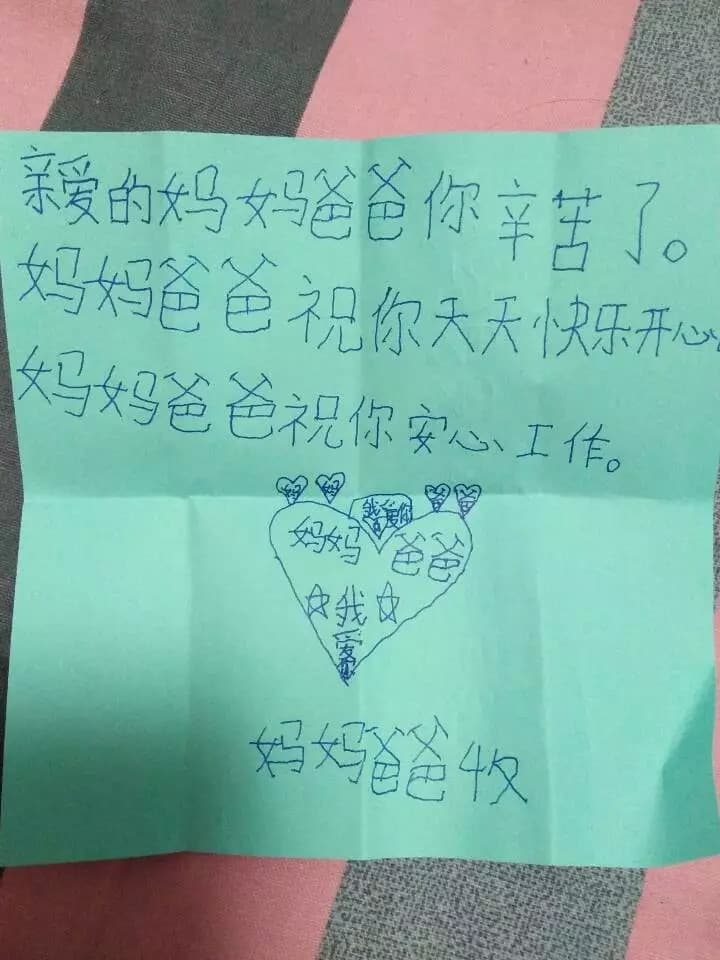 亲爱的妈妈爸爸你辛苦了。
妈妈爸爸祝你天天快乐开心
妈妈爸爸祝你安心工作。
妈 妈 我爱你 爸 爸
妈妈 爸爸
我
爱
你
妈妈爸爸收